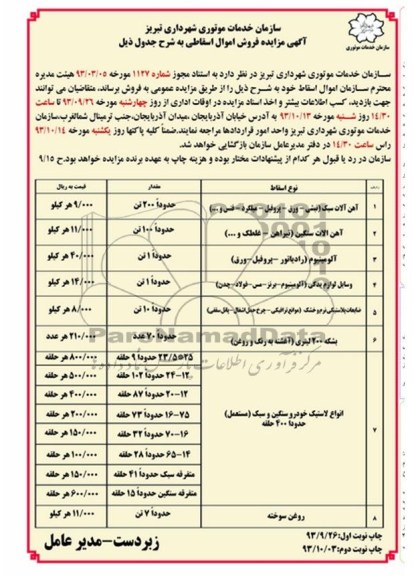 سازمان خدمات موتوری شهرداری تبریز
آگهی مزایده فروش اموال اسقاطی به شرح جدول ذیل
سازمان خدمات موتوری
سازمان خدمات موتوری شهرداری تبریز در نظر دارد به استناد مجوز شماره ۱۱۲۷ مورخه ۹۳/۰۳/۰۵ هیئت مدیره
محترم سازمان اموال اسقاط خود به شرح ذیل را از طریق مزایده عمومی به فروش برساند، متقاضیان می توانند
جهت بازدید، کسب اطلاعات بیشتر و اخذ اسناد مزایده در اوقات اداری از روز چهارشنبه مورخه ۹۳/۰۹/۲۶ تا ساعت
۱۴/۳۰ روز شنبه مورخه ۹۳/۱۰/۱۳ به آدرس خیابان آذربایجان ،میدان آذربایجان،جنب ترمینال شمالغرب،سازمان
خدمات موتوری شهرداری تبریز واحد امور قراردادها مراجعه نمایند.ضمناً کلیه پاکتها روز یکشنبه مورخه ۹۳/۱۰/۱۴
راس ساعت ۱۴/۳۰ در دفتر مدیرعامل سازمان بازگشایی خواهد شد.
سازمان در رد یا قبول هر کدام از پیشنهادات مختار بوده و هزینه چاپ به عهده برنده مزایده خواهد بود.ح ۹/۱۵
ردیف نوع اسقاط مقدار قیمت به ریال
۱ آهن آلات سبک (نبشی - ورق - پروفیل - میلگرد - قس و ...) حدوداً ۲۰۰ تن ۹/۰۰۰ هر کیلو
۲ آهن الات سنگین (تیرآهن - غلطک و ...) حدوداً ۱۰۰ تن ۱۱/۰۰۰ هر کیلو
۳ آلومینیوم (رادیاتور - پروفیل - ورق) حدوداً ۱ تن ۴۰/۰۰۰ هر کیلو
۴ وسایل لوازم یدکی (آلومینیوم - برنز - مس - فولاد - چدن) حدوداً ۱ تن ۱۴/۰۰۰ هر کیلو
۵ ضایعات پلاستیکی نرم و خشک (موانع ترافیکی - چرخ حمل آشغال - پانل سقفی) حدوداً ۱۰ تن ۸/۰۰۰ هر کیلو
۶ بشکه ۲۰۰ لیتری (آغشته به رنگ و روغن) حدوداً ۷۰ عدد ۲۱۰/۰۰۰ هر عدد
۷ انواع لاستیک خودرو سنگین و سبک (مستعمل)
حدوداً ۴۰۰ حلقه
۲۳/۵*۲۵ حدوداً ۹ حلقه ۸۰۰/۰۰۰ هر حلقه
۱۲-۲۴ حدوداً ۱۰۲ حلقه ۵۰۰/۰۰۰ هر حلقه
۱۲-۲۰ حدوداً ۸۷ حلقه ۴۰۰/۰۰۰ هر حلقه
۷۵-۱۶ حدوداً ۷۳ حلقه ۲۰۰/۰۰۰ هر حلقه
۷۰-۱۶ حدوداً ۳۲ حلقه ۱۵۰/۰۰۰ هر حلقه
۶۵-۱۴ حدوداً ۲۸ حلقه ۱۰۰/۰۰۰ هر حلقه
متفرقه سبک حدوداً ۴۱ حلقه ۱۵۰/۰۰۰ هر حلقه
متفرقه سنگین حدوداً ۱۵ حلقه ۶۰۰/۰۰۰ هر حلقه
۸ روغن سوخته حدوداً ۷ تن ۱۱/۰۰۰ هر کیلو
چاپ نوبت اول:۹۳/۹/۲۶
چاپ نوبت دوم:۹۳/۱۰/۰۳
زبردست-مدیر عامل
ParsNamadData